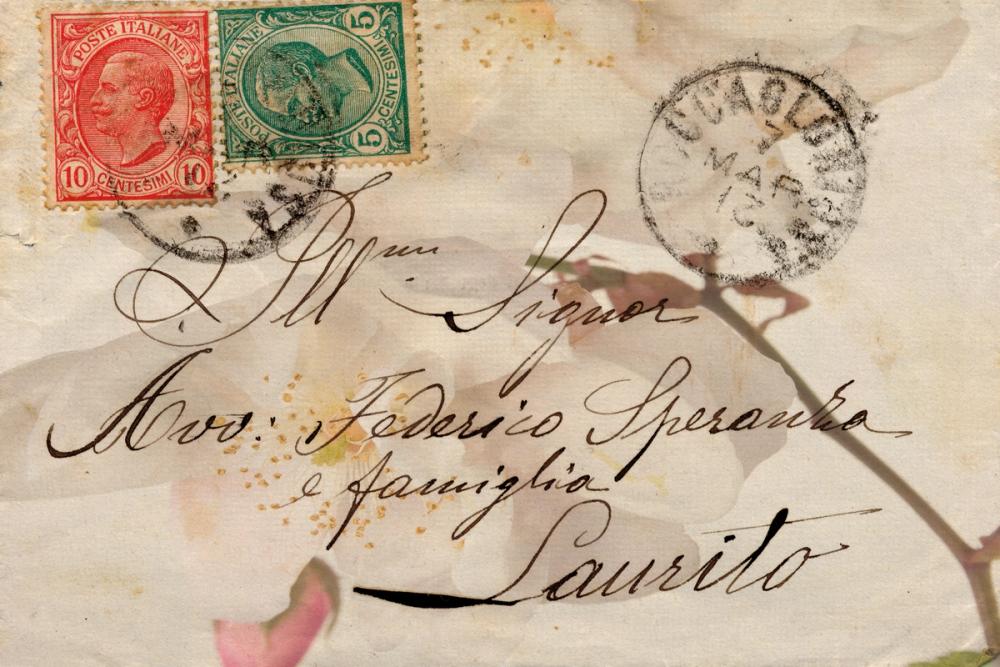 POSTE ITALIANE
10 CENTESIMI 10
POSTE ITALIANE
5 CENTESIMI 5
MAR
Ill^mo Signor
Avv: Federico Speranza
e famiglia
Laurito